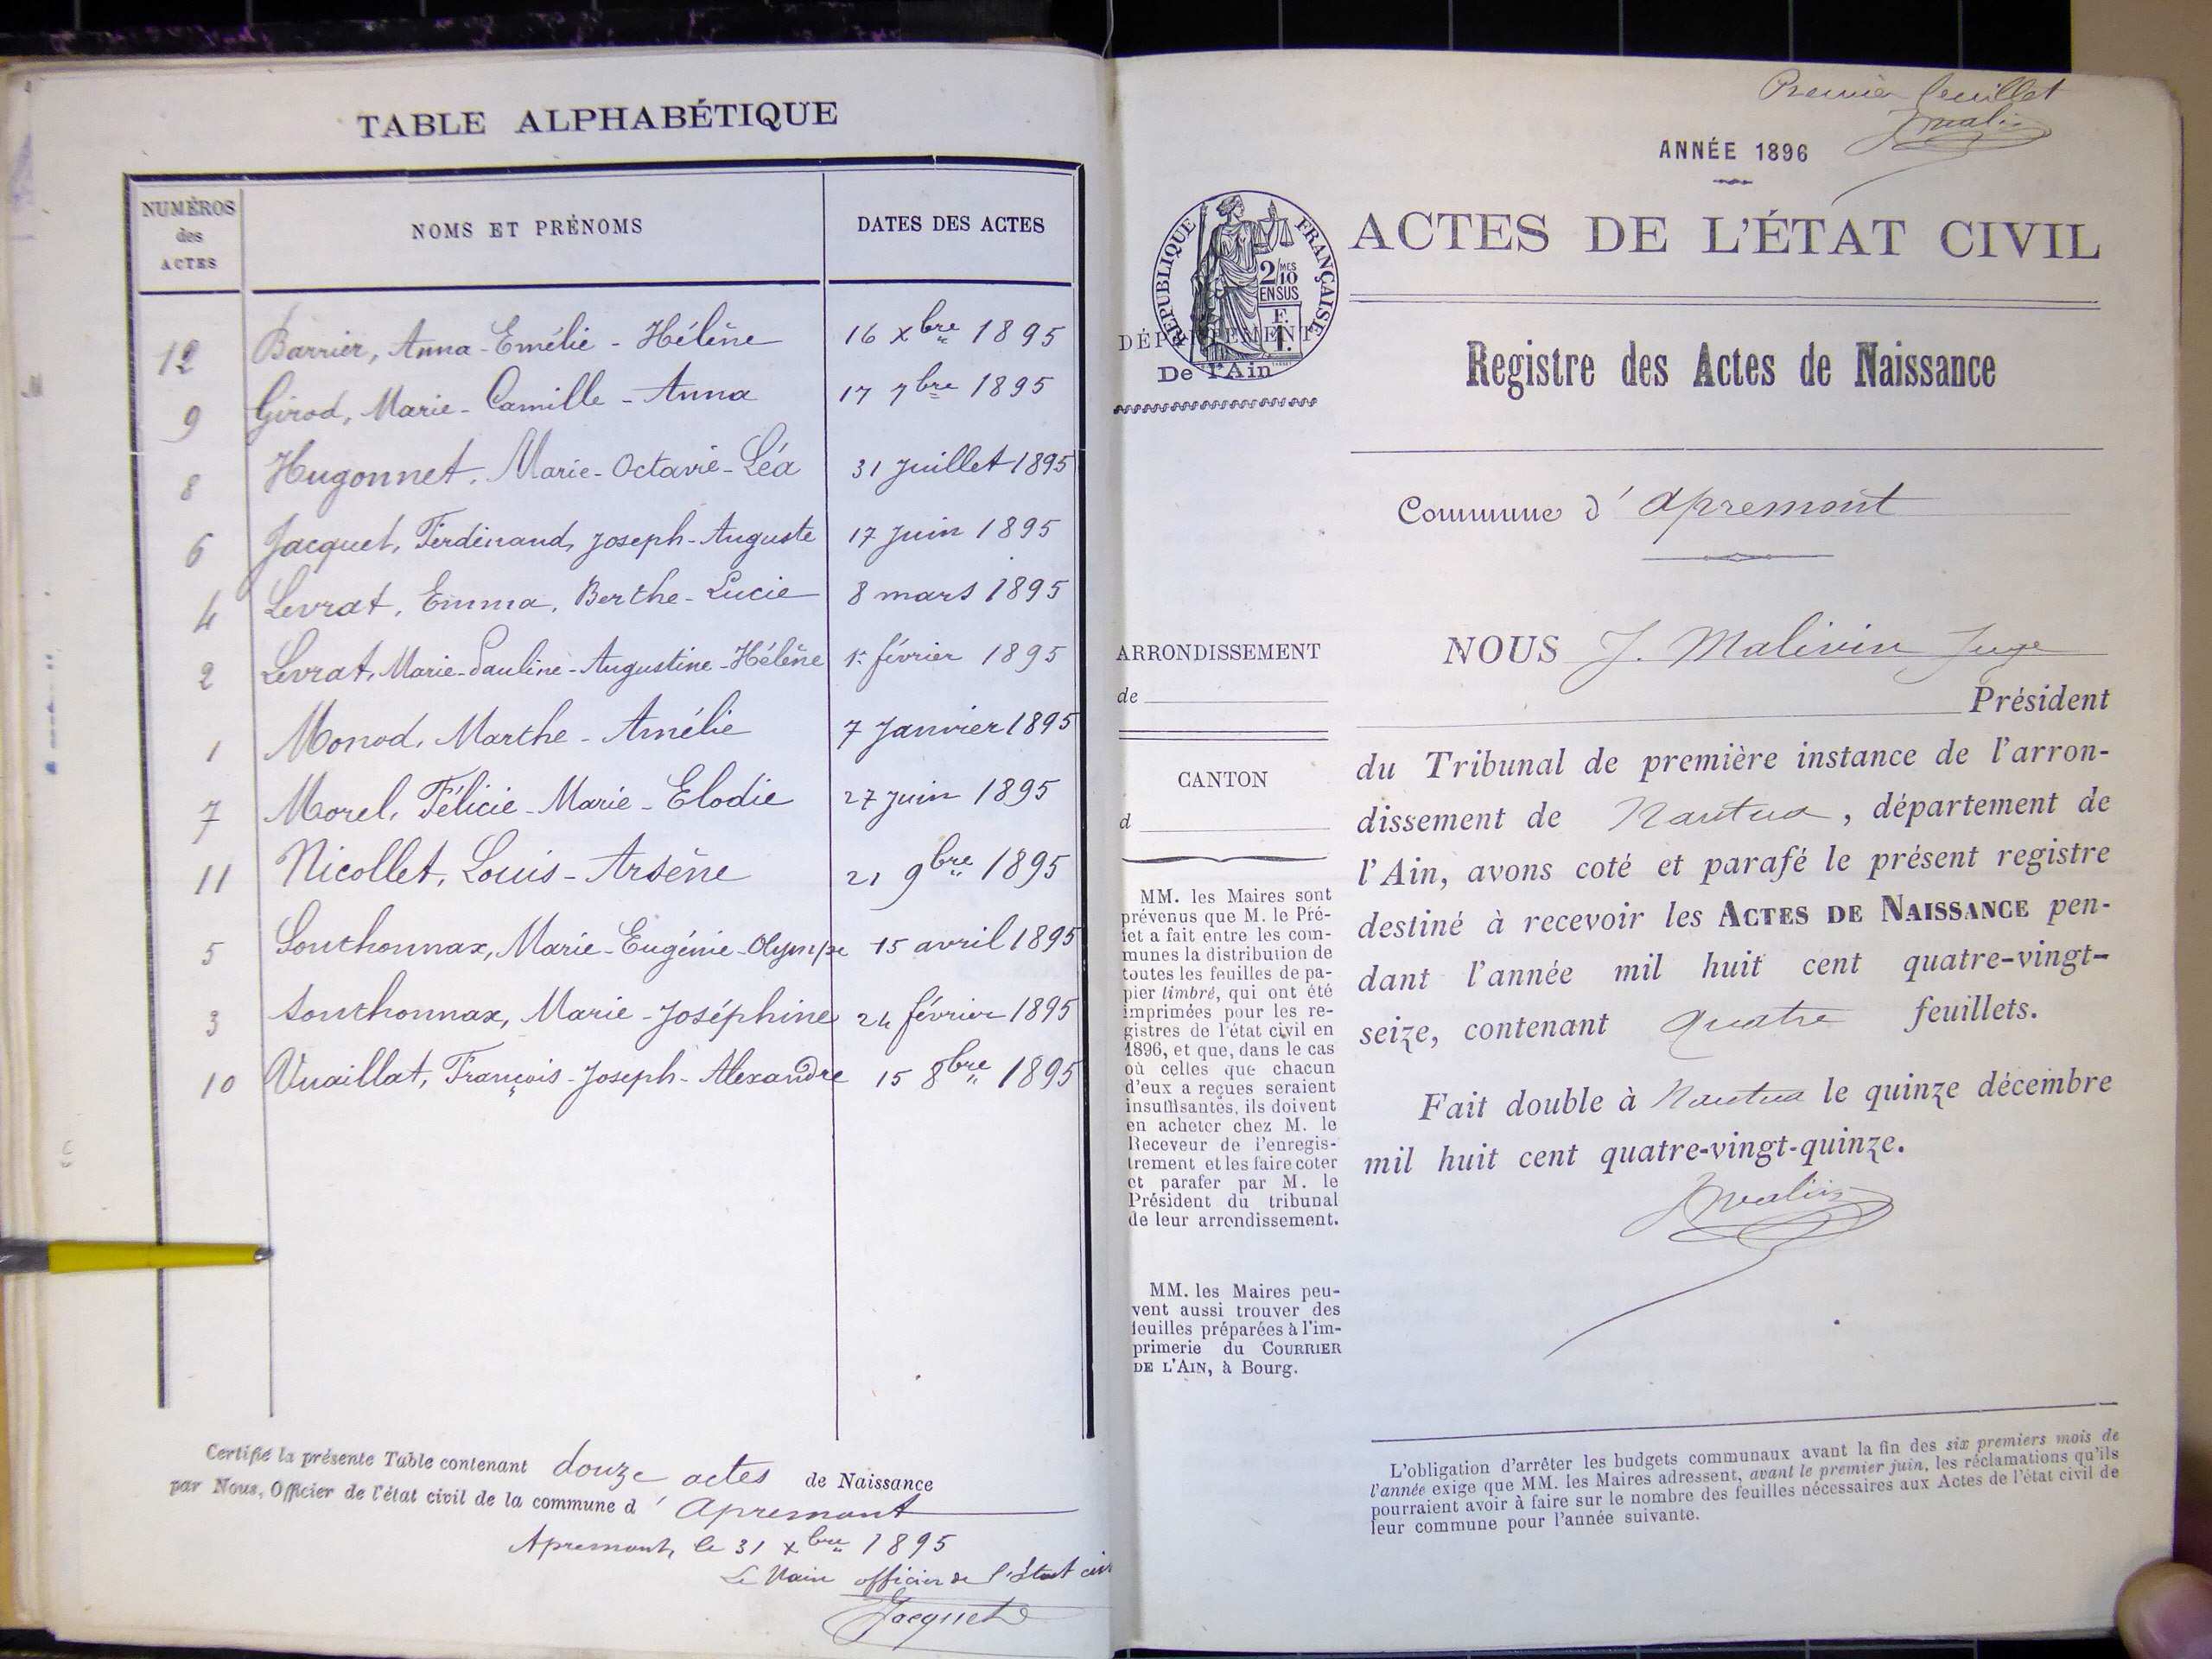 TABLE ALPHABÉTIQUE
NUMÉROS
des
ACTES
NOMS ET PRÉNOMS
DATES DES ACTES
12 Barrier, Anna-Emélie-Hélène 16 xbre 1895
9 Girod, Marie-Camille-Anna 17 7bre 1895
8 Hugonnet, Marie-Octavie-Léa 31 Juillet 1895
6 Jacquet, Ferdinand, Joseph-Auguste 17 Juin 1895
4 Levrat, Emma, Berthe-Lucie 8 mars 1895
2 Levrat, Marie-Pauline-Augustine-Hélène 1er février 1895
1 Monod, Marthe-Amélie 7 Janvier 1895
7 Morel, Félicie-Marie-Elodie 27 Juin 1895
11 Nicollet, Louis-Arsène 21 9bre 1895
5 Sonthonnax, Marie-Eugénie-Olympe 15 avril 1895
3 Sonthonnax, Marie-Joséphine 24 février 1895
10 Vuaillat, François-Joseph-Alexandre 15 8bre 1895
Certifié la présente Table contenant douze actes de Naissance
par Nous, Officier de l'état civil de la commune d'Apremont
Apremont, le 31 xbre 1895
Le Maire officier de l'État civ
Jacquet
Premier feuillet
ANNÉE 1896
RÉPUBLIQUE FRANÇAISE
2/10 MES
EN SUS
DÉPARTEMENT
De l'Ain
ACTES DE L'ÉTAT CIVIL
Registre des Actes de Naissance
Commune d'Apremont
ARRONDISSEMENT
de
CANTON
d
MM. les Maires sont
prévenus que M. le Pré-
fet a fait entre les com-
munes la distribution de
toutes les feuilles de pa-
pier timbré, qui ont été
imprimées pour les re-
gistres de l'état civil en
1896, et que, dans le cas
où celles que chacun
d'eux a reçues seraient
insuffisantes, ils doivent
en acheter chez M. le
Receveur de l'enregis-
trement et les faire coter
et parafer par M. le
Président du tribunal
de leur arrondissement.
MM. les Maires peu-
vent aussi trouver des
feuilles préparées à l'im-
primerie du COURRIER
DE L'AIN, à Bourg.
NOUS J. Malivin Juge
Président
du Tribunal de première instance de l'arron-
dissement de Nantua, département de
l'Ain, avons coté et parafé le présent registre
destiné à recevoir les ACTES DE NAISSANCE pen-
dant l'année mil huit cent quatre-vingt-
seize, contenant quatre feuillets.
Fait double à Nantua le quinze décembre
mil huit cent quatre-vingt-quinze.
L'obligation d'arrêter les budgets communaux avant la fin des six premiers mois de
l'année exige que MM. les Maires adressent, avant le premier juin, les réclamations qu'ils
pourraient avoir à faire sur le nombre des feuilles nécessaires aux Actes de l'état civil de
leur commune pour l'année suivante.